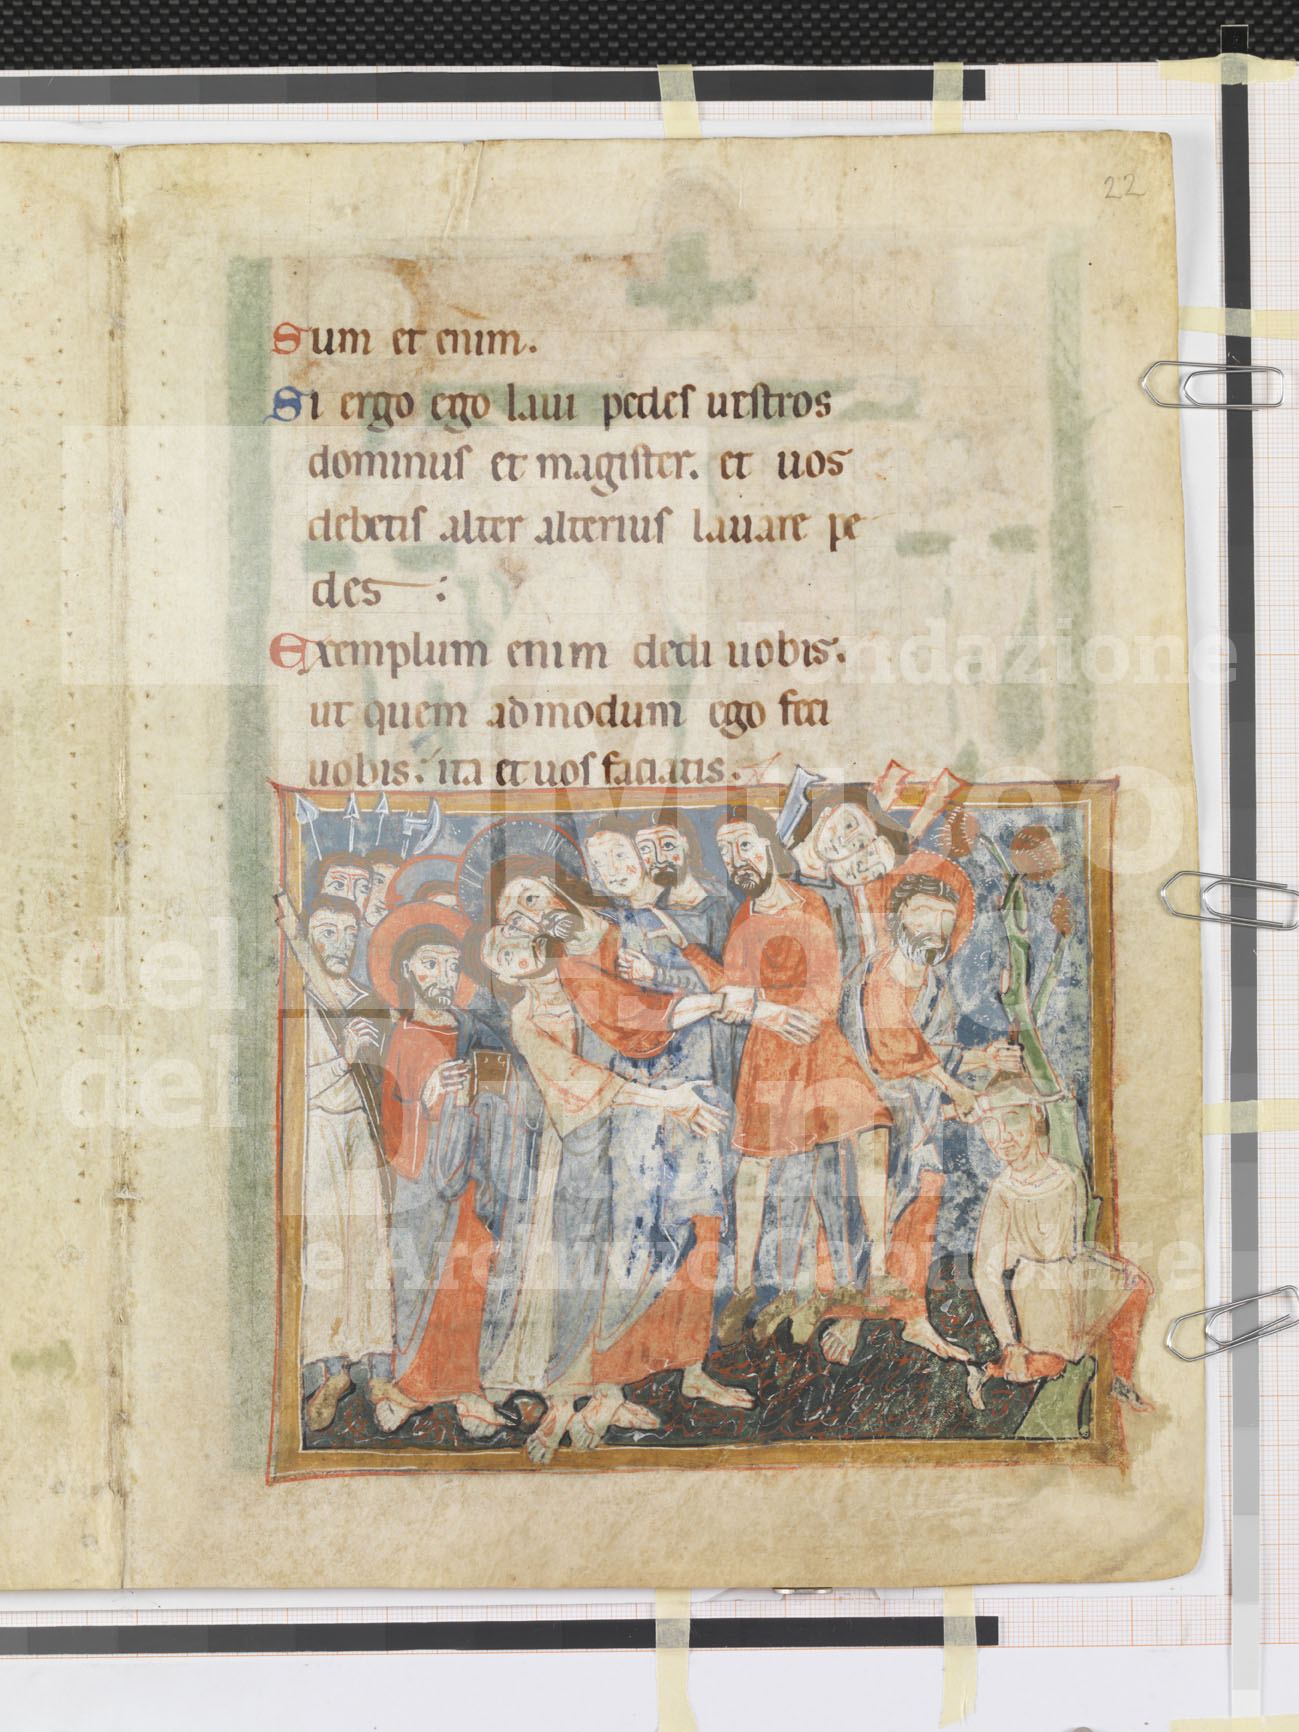 22
Sum et enim.
Si ergo ego laui pedes urstros
dominus et magister. et uos
debetis alter alterius lauare pe
des :
Exemplum enim dedi uobis.
ut quem admodum ego feci
uobis: ita et uos faciatis.
Fondazione
Museo
del Tesoro
del Duomo
e Archivio Capitolare